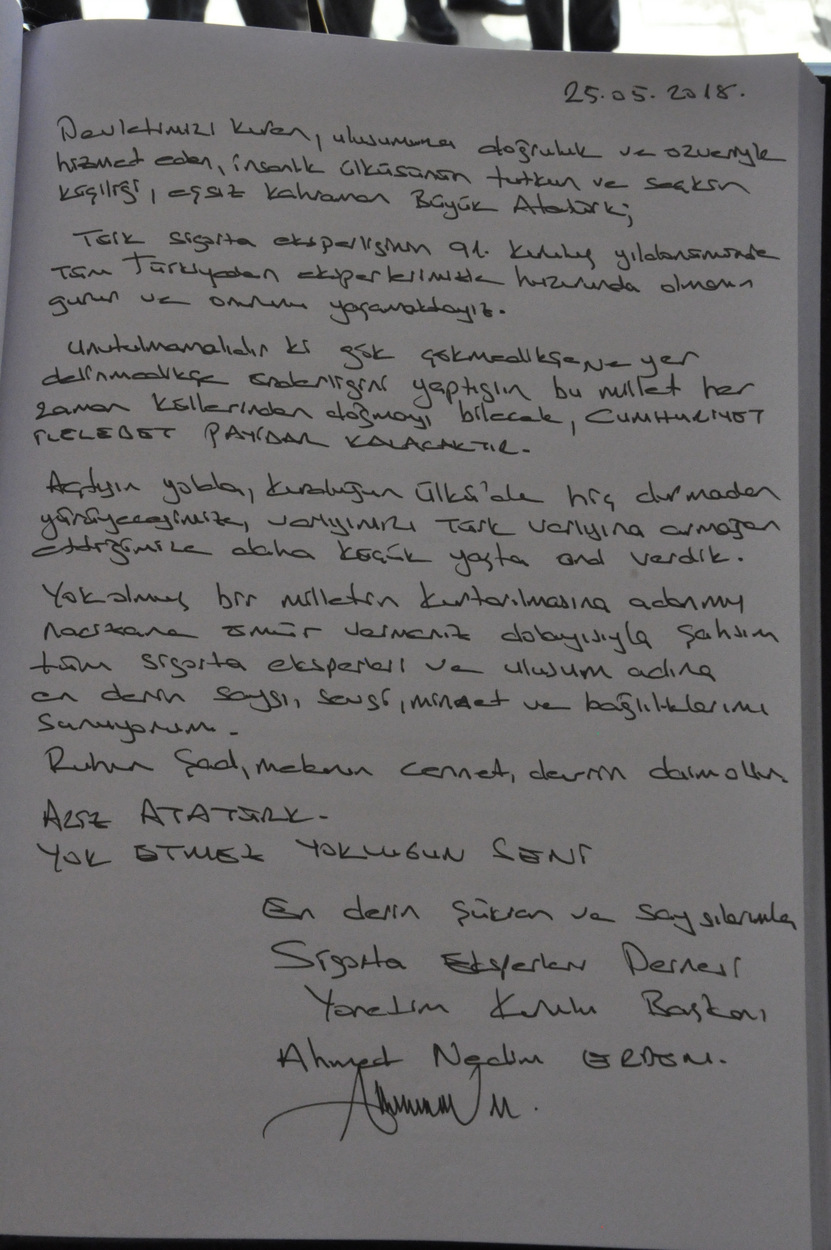 25.05.2018.
Devletimizi kuran, ulusumuza doğruluk ve özveriyle
hizmet eden, insanlık ülküsünün tutkun ve seçkin
kişiliği, eşsiz kahraman Büyük Atatürk;
Türk sigorta eksperliğinin 91. kuruluş yıldönümünde
tüm Türkiyeden eksperlerimizle huzurunda olmanın
gurur ve onurunu yaşamaktayız.
Unutulmamalıdır ki gök çökmedikçe ve yer
delinmedikçe önderliğini yaptığın bu millet her
zaman küllerinden doğmayı bilecek, CUMHURİYET
İLELEBET PAYİDAR KALACAKTIR.
Açtığın yolda, kurduğun ülkü'de hiç durmadan
yürüyeceğimize, varlığımızı Türk varlığına armağan
ettiğimize daha küçük yaşta and verdik.
Yok olmuş bir milletin kurtarılmasına adanmış
naçizane ömür vermeniz dolayısıyla şahsım
tüm sigorta eksperleri ve ulusum adına
en derin saygı, sevgi, minnet ve bağlılıklarımı
sunuyorum.
Ruhun şad, mekanın cennet, devrin daim olsun
Aziz ATATÜRK.
YOK ETMEZ YOKLUĞUN SENİ
En derin şükran ve saygılarımla
Sigorta Eksperleri Derneği
Yönetim Kurulu Başkanı
Ahmed Nedim ERDEM.